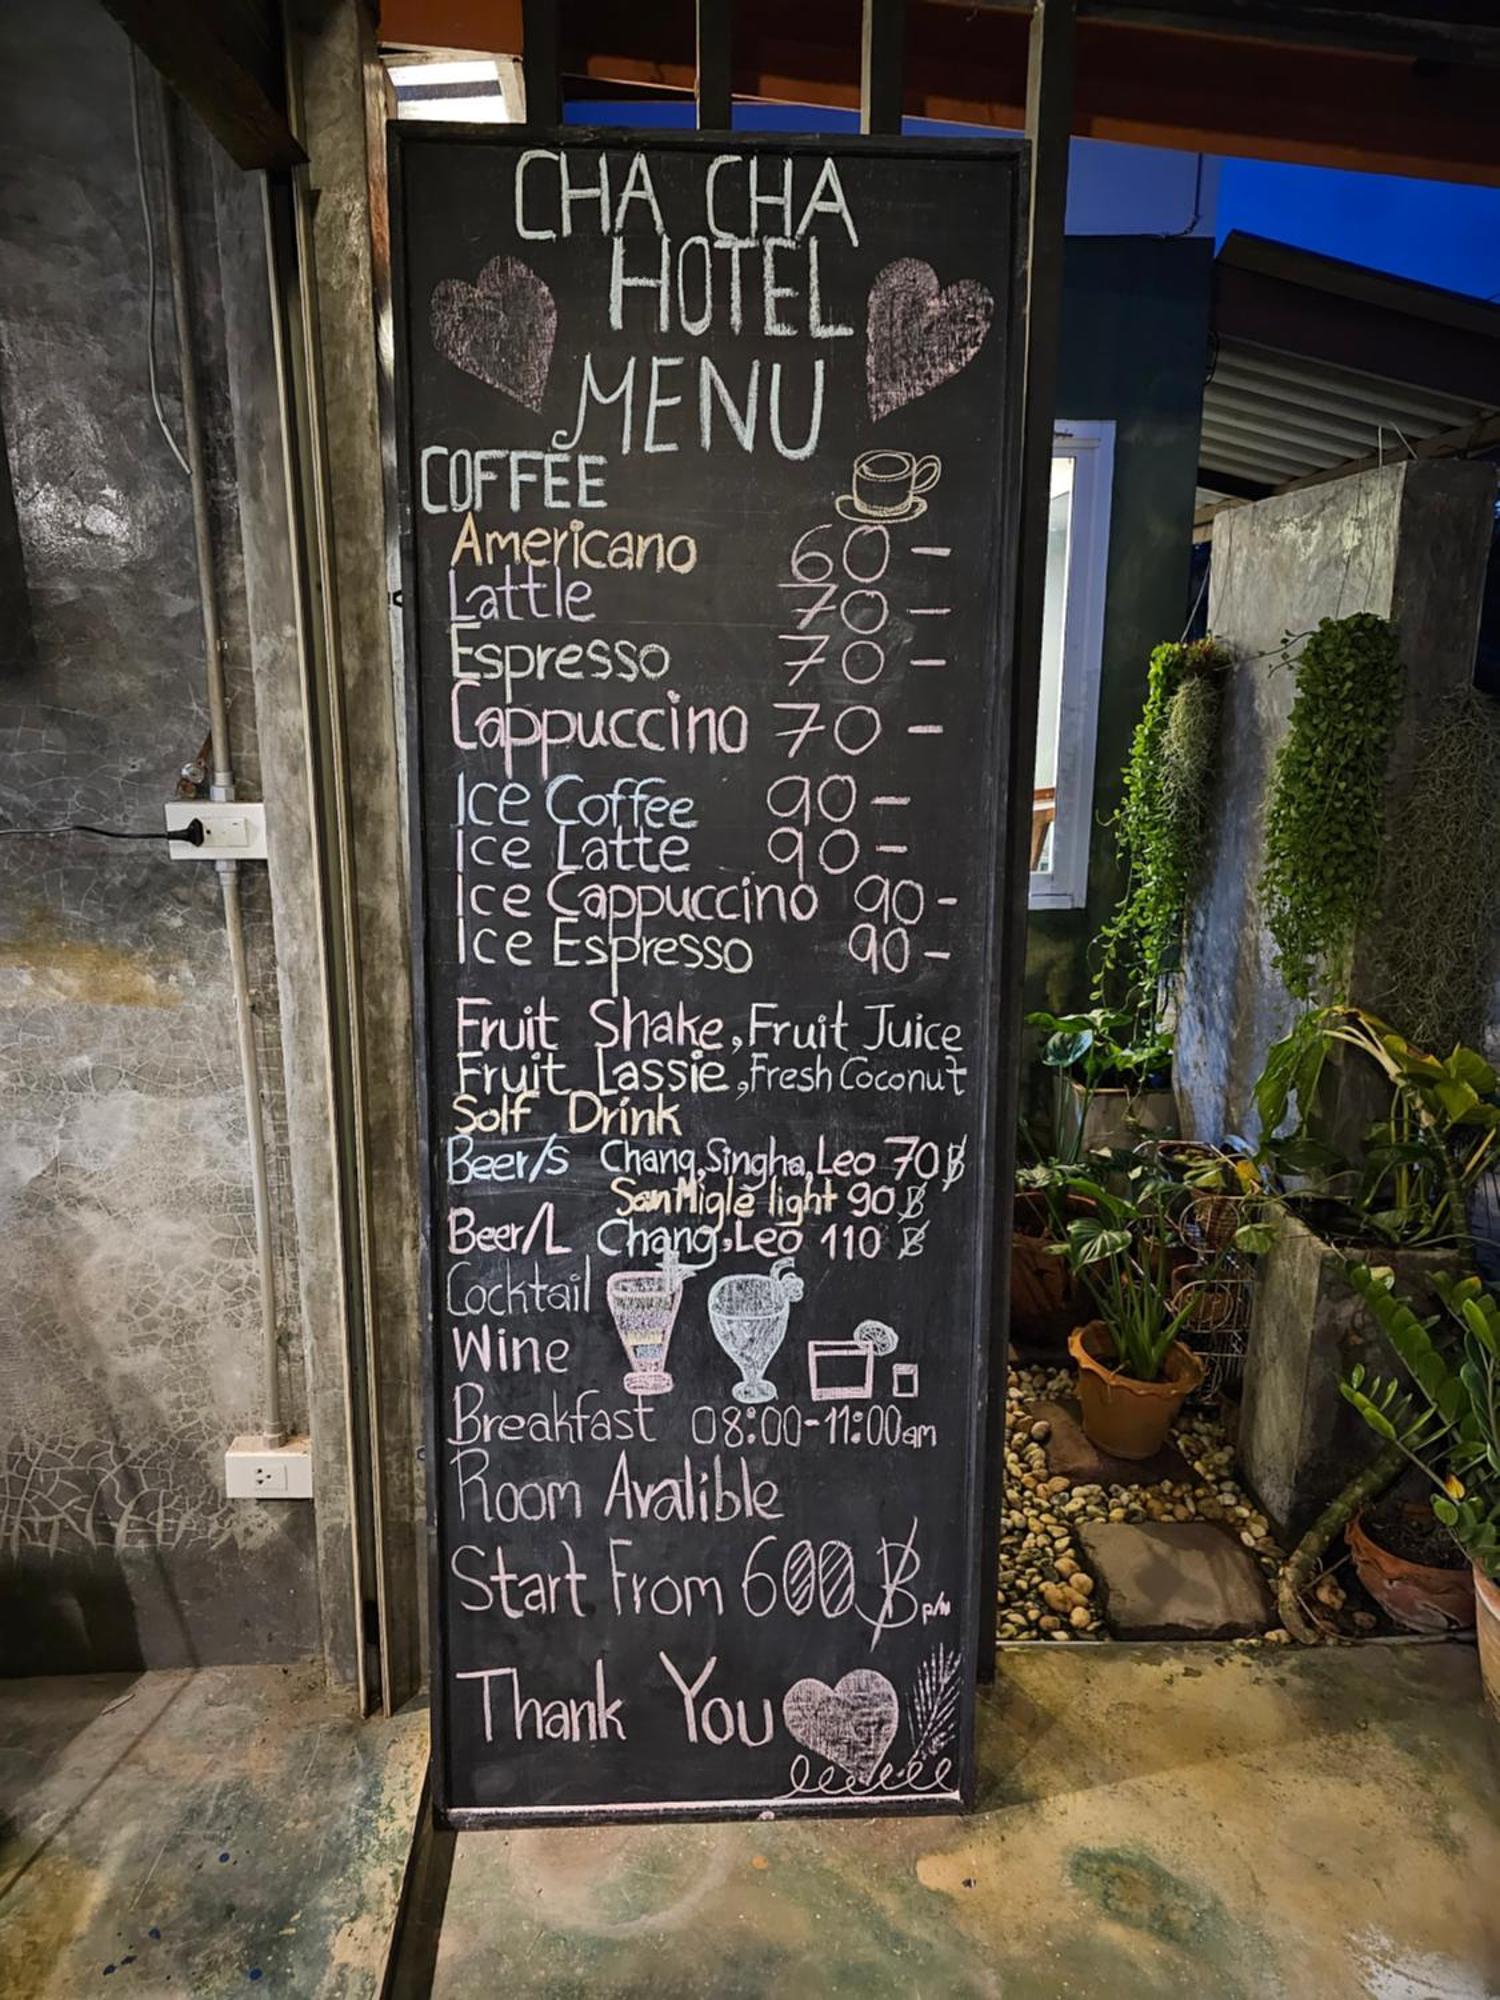 CHA CHA
HOTEL
MENU
COFFEE
Americano 60-
Lattle 70-
Espresso 70-
Cappuccino 70-
Ice Coffee 90-
Ice Latte 90-
Ice Cappuccino 90-
Ice Espresso 90-
Fruit Shake, Fruit Juice
Fruit Lassie, Fresh Coconut
Solf Drink
Beer/s Chang, Singha, Leo 70฿
San Migle light 90฿
Beer/L Chang, Leo 110฿
Cocktail
Wine
Breakfast 08:00-11:00am
Room Avalible
Start From 600฿ p/n
Thank You